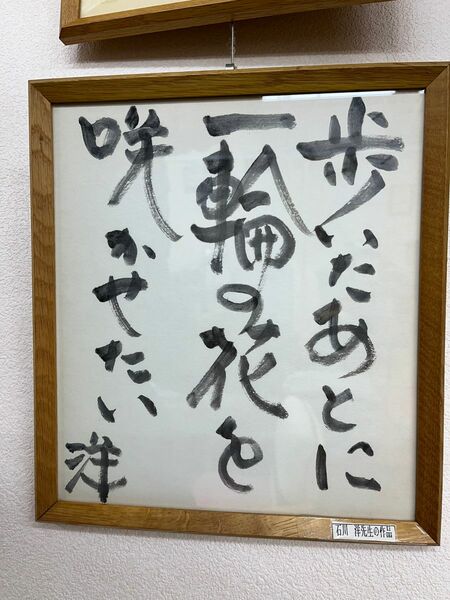 歩いたあとに
一輪の花を
咲かせたい 洋
石川 洋先生の作品